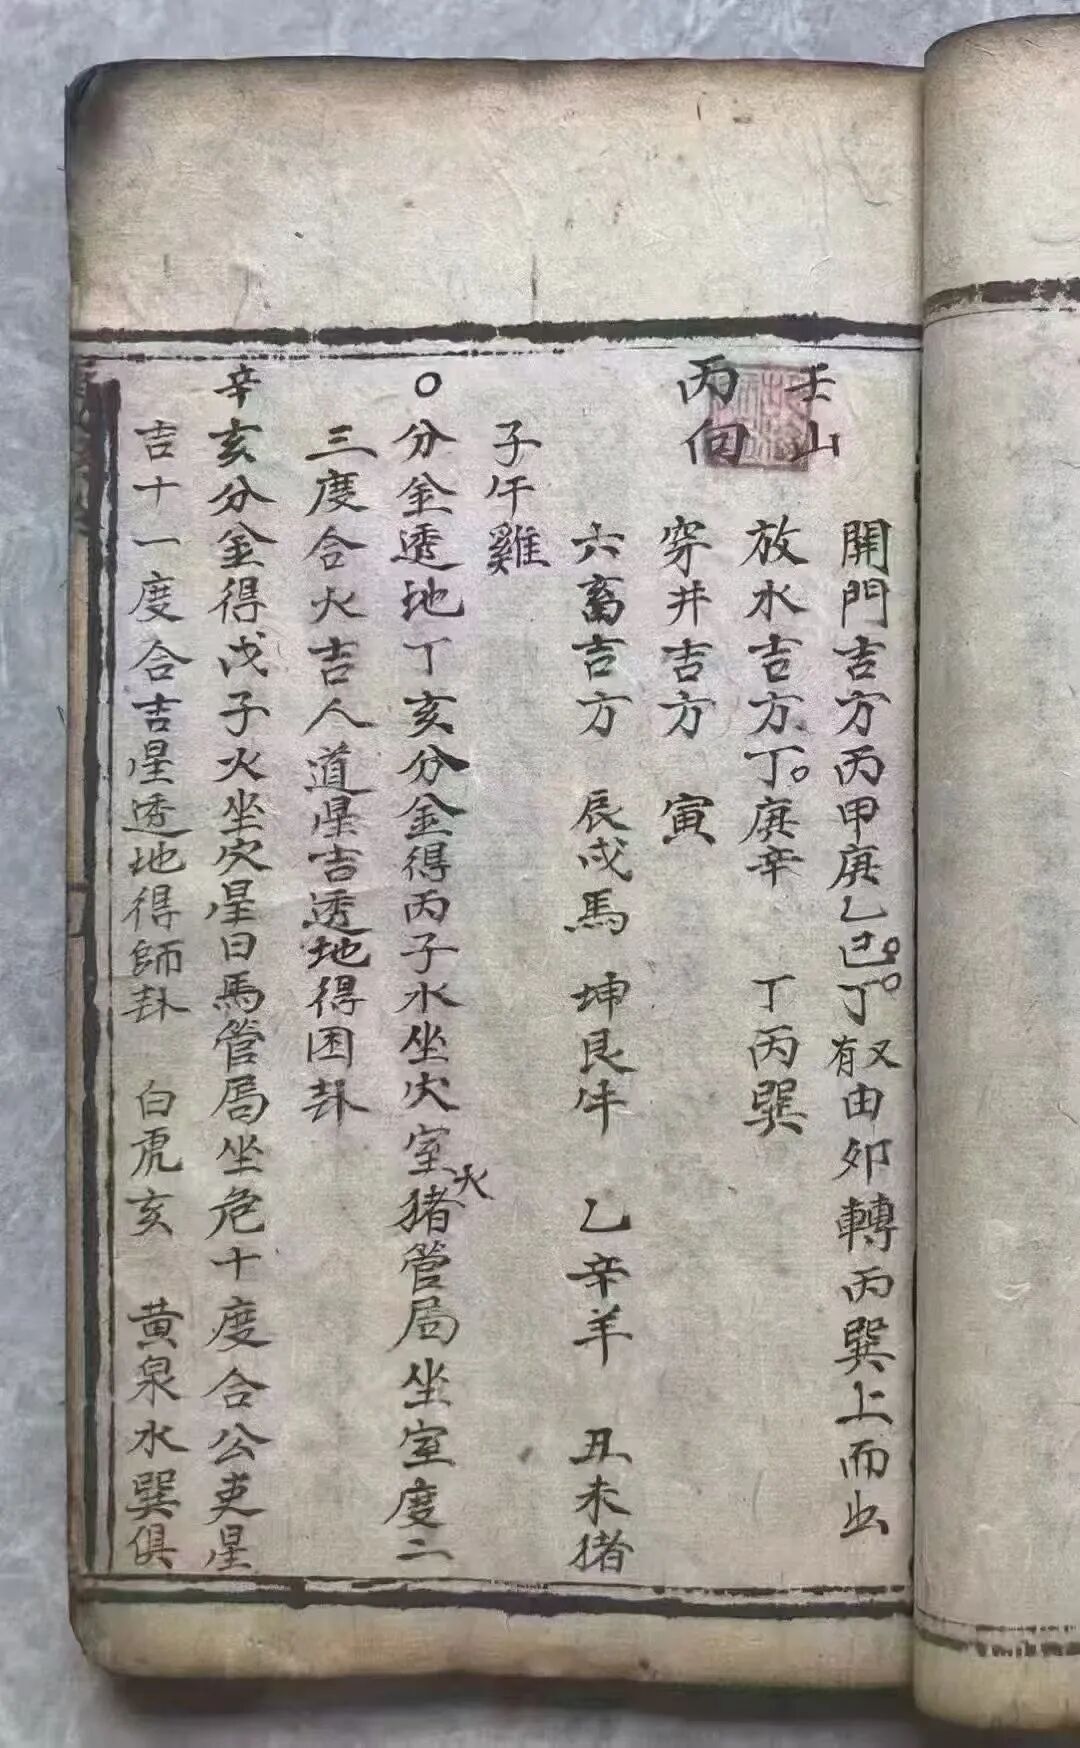 壬山
丙向
開門吉方丙甲庚乙巳丁又有由卯轉丙巽上而出
放水吉方丁庚辛 丁丙巽
穿井吉方 寅
六畜吉方 辰戌馬 坤艮牛 乙辛羊 丑未猪
子午雞
○分金透地丁亥分金得丙子水坐穴室火猪管局坐室度二
三度合火吉人道星吉透地得困卦
辛亥分金得戊子火坐穴星日馬管局坐危十度合公吏星
吉十一度合吉星透地得師卦 白虎亥 黃泉水巽俱